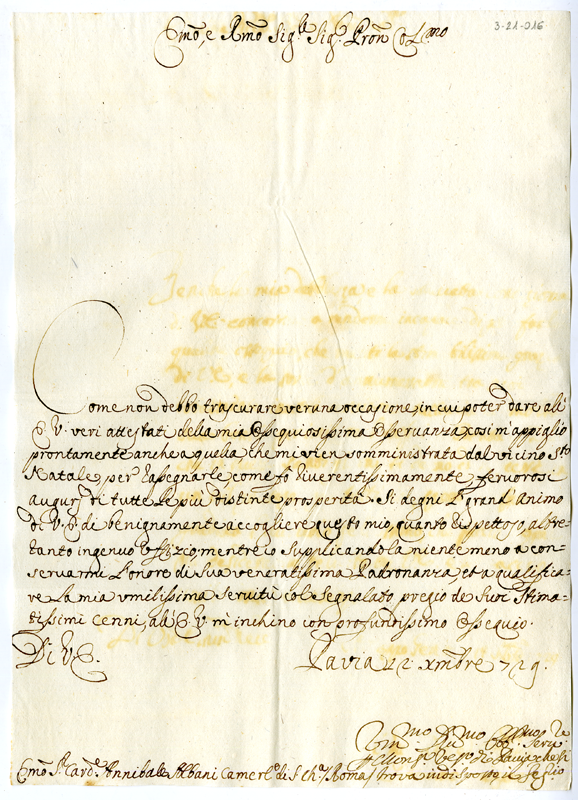 3-21-016
Emo, e Rmo Sig.re Sig.r Pron Col.mo
Come non debbo trascurare veruna occasione, in cui poter dare all'
E. V. veri attestati della mia Ossequiosissima Osservanza, cosi m'appiglio
prontamente anche a quella, che mi vien somministrata dal vicino Sto
Natale, per rassegnarle, come fò riverentissimamente, fervorosi
augurj di tutte le più distinte prosperità. Si degni l'grand' Animo
di V. E. di benignamente accogliere questo mio, quanto rispettoso, altre-
tanto ingenuo Uffizio; mentre io supplicandola niente meno a con-
servarmi l'onore di Sua veneratissima Padronanza, et a qualifica-
re la mia umilissima Servitù col Segnalato pregio de Suoi Stima-
tissimi Cenni, all' E. V. m'inchino con profundissimo Ossequio.
Di V. E. Pavia 22 Xmbre 729.
Um.mo Obb.mo Serv.
Vesc.o di Pavia che si
Emo Sr. Card. Annibale Albani Camerl.o di S. Ch.a Roma trova indisposto